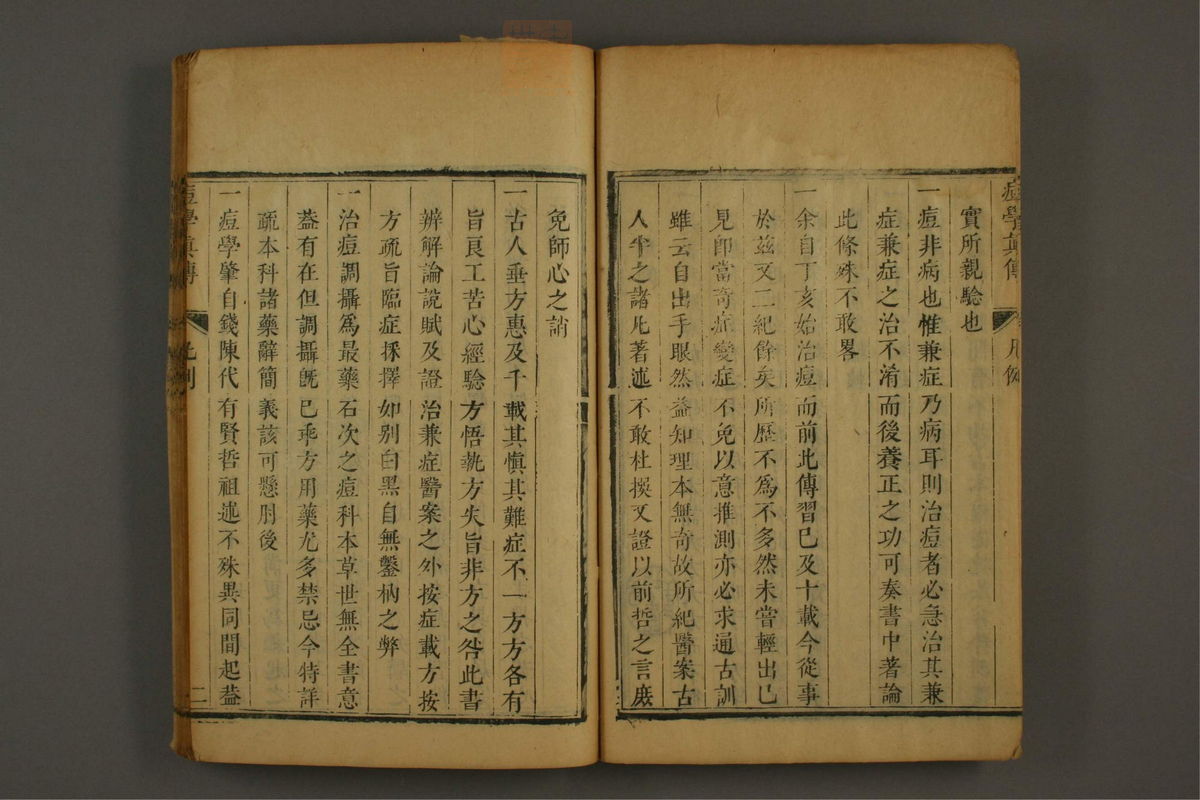 痘學真傳
凡例
實所親驗也
一痘非病也惟兼症乃病耳則治痘者必急治其兼
症兼症之治不淆而後養正之功可奏書中著論
此條殊不敢畧
一余自丁亥始治痘而前此傳習已及十載今從事
於茲又二紀餘矣所歷不爲不多然未嘗輕出己
見卽當奇症變症不免以意推測亦必求通古訓
雖云自出手眼然益知理本無奇故所紀醫案古
人半之諸凡著述不敢杜撰又證以前哲之言庶
免師心之誚
一古人垂方惠及千載其慎其難症不一方方各有
旨良工苦心經驗方悟執方失旨非方之咎此書
辨解論說賦及證治兼症醫案之外按症載方按
方疏旨臨症採擇如別白黑自無鑿枘之弊
一治痘調攝爲最藥石次之痘科本草世無全書意
葢有在但調攝旣已乖方用藥尤多禁忌今特詳
疏本科諸藥辭簡義該可懸肘後
一痘學肇自錢陳代有賢哲祖述不殊異同間起葢
痘學真傳
凡例
二